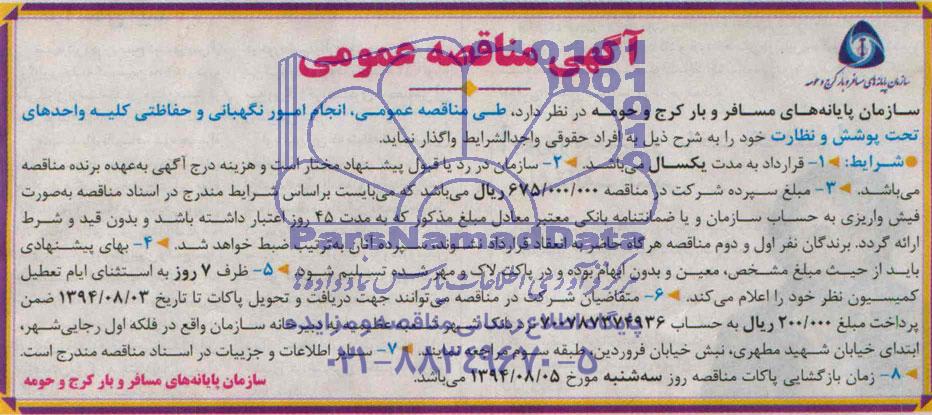 آگهی مناقصه عمومی
سازمان پایانه‌های مسافر و بار کرج و حومه
سازمان پایانه‌های مسافر و بار کرج و حومه در نظر دارد، طی مناقصه عمومی، انجام امور نگهبانی و حفاظتی کلیه واحدهای
تحت پوشش و نظارت خود را به شرح ذیل به افراد حقوقی واجدالشرایط واگذار نماید.
شرایط: ۱- قرارداد به مدت یکسال می‌باشد. ۲- سازمان در رد یا قبول پیشنهاد مختار است و هزینه درج آگهی به‌عهده برنده مناقصه
می‌باشد. ۳- مبلغ سپرده شرکت در مناقصه ۶۷۵/۰۰۰/۰۰۰ ریال می‌باشد که می‌بایست براساس شرایط مندرج در اسناد مناقصه به‌صورت
فیش واریزی به حساب سازمان و یا ضمانتنامه بانکی معتبر معادل مبلغ مذکور که به مدت ۴۵ روز اعتبار داشته باشد و بدون قید و شرط
ارائه گردد. برندگان نفر اول و دوم مناقصه هرگاه حاضر به انعقاد قرارداد نشوند، سپرده آنان به‌ترتیب ضبط خواهد شد. ۴- بهای پیشنهادی
باید از حیث مبلغ مشخص، معین و بدون ابهام بوده و در پاکت لاک و مهر شده تسلیم شود. ۵- ظرف ۷ روز به استثنای ایام تعطیل
کمیسیون نظر خود را اعلام می‌کند. ۶- متقاضیان شرکت در مناقصه می‌توانند جهت دریافت و تحویل پاکات تا تاریخ ۱۳۹۴/۰۸/۰۳ ضمن
پرداخت مبلغ ۲۰۰/۰۰۰ ریال به حساب ۷۰۰۷۸۷۳۷۴۹۳۶ نزد بانک شهر شعبه عظیمیه به دبیرخانه سازمان واقع در فلکه اول رجایی‌شهر،
ابتدای خیابان شهید مطهری، نبش خیابان فروردین، طبقه سوم مراجعه نمایند. ۷- سایر اطلاعات و جزییات در اسناد مناقصه مندرج است.
۸- زمان بازگشایی پاکات مناقصه روز سه‌شنبه مورخ ۱۳۹۴/۰۸/۰۵ می‌باشد.
سازمان پایانه‌های مسافر و بار کرج و حومه
ParsNamadData
مرکز فرآوری اطلاعات پارس نماد داده‌ها
پایگاه اطلاع رسانی مناقصه و مزایده
۰۲۱-۸۸۳۴۹۶۷۰-۵